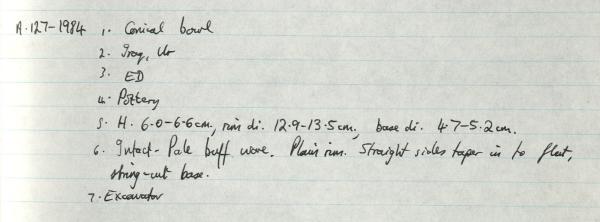 A.127-1984 1. Conical bowl
2. Iraq, Ur
3. ED
4. Pottery
5. H. 6.0-6.6cm, rim di. 12.9-13.5cm, base di. 4.7-5.2cm.
6. Intact. Pale buff ware. Plain rim. Straight sides taper in to flat,
string-cut base.
7. Excavator